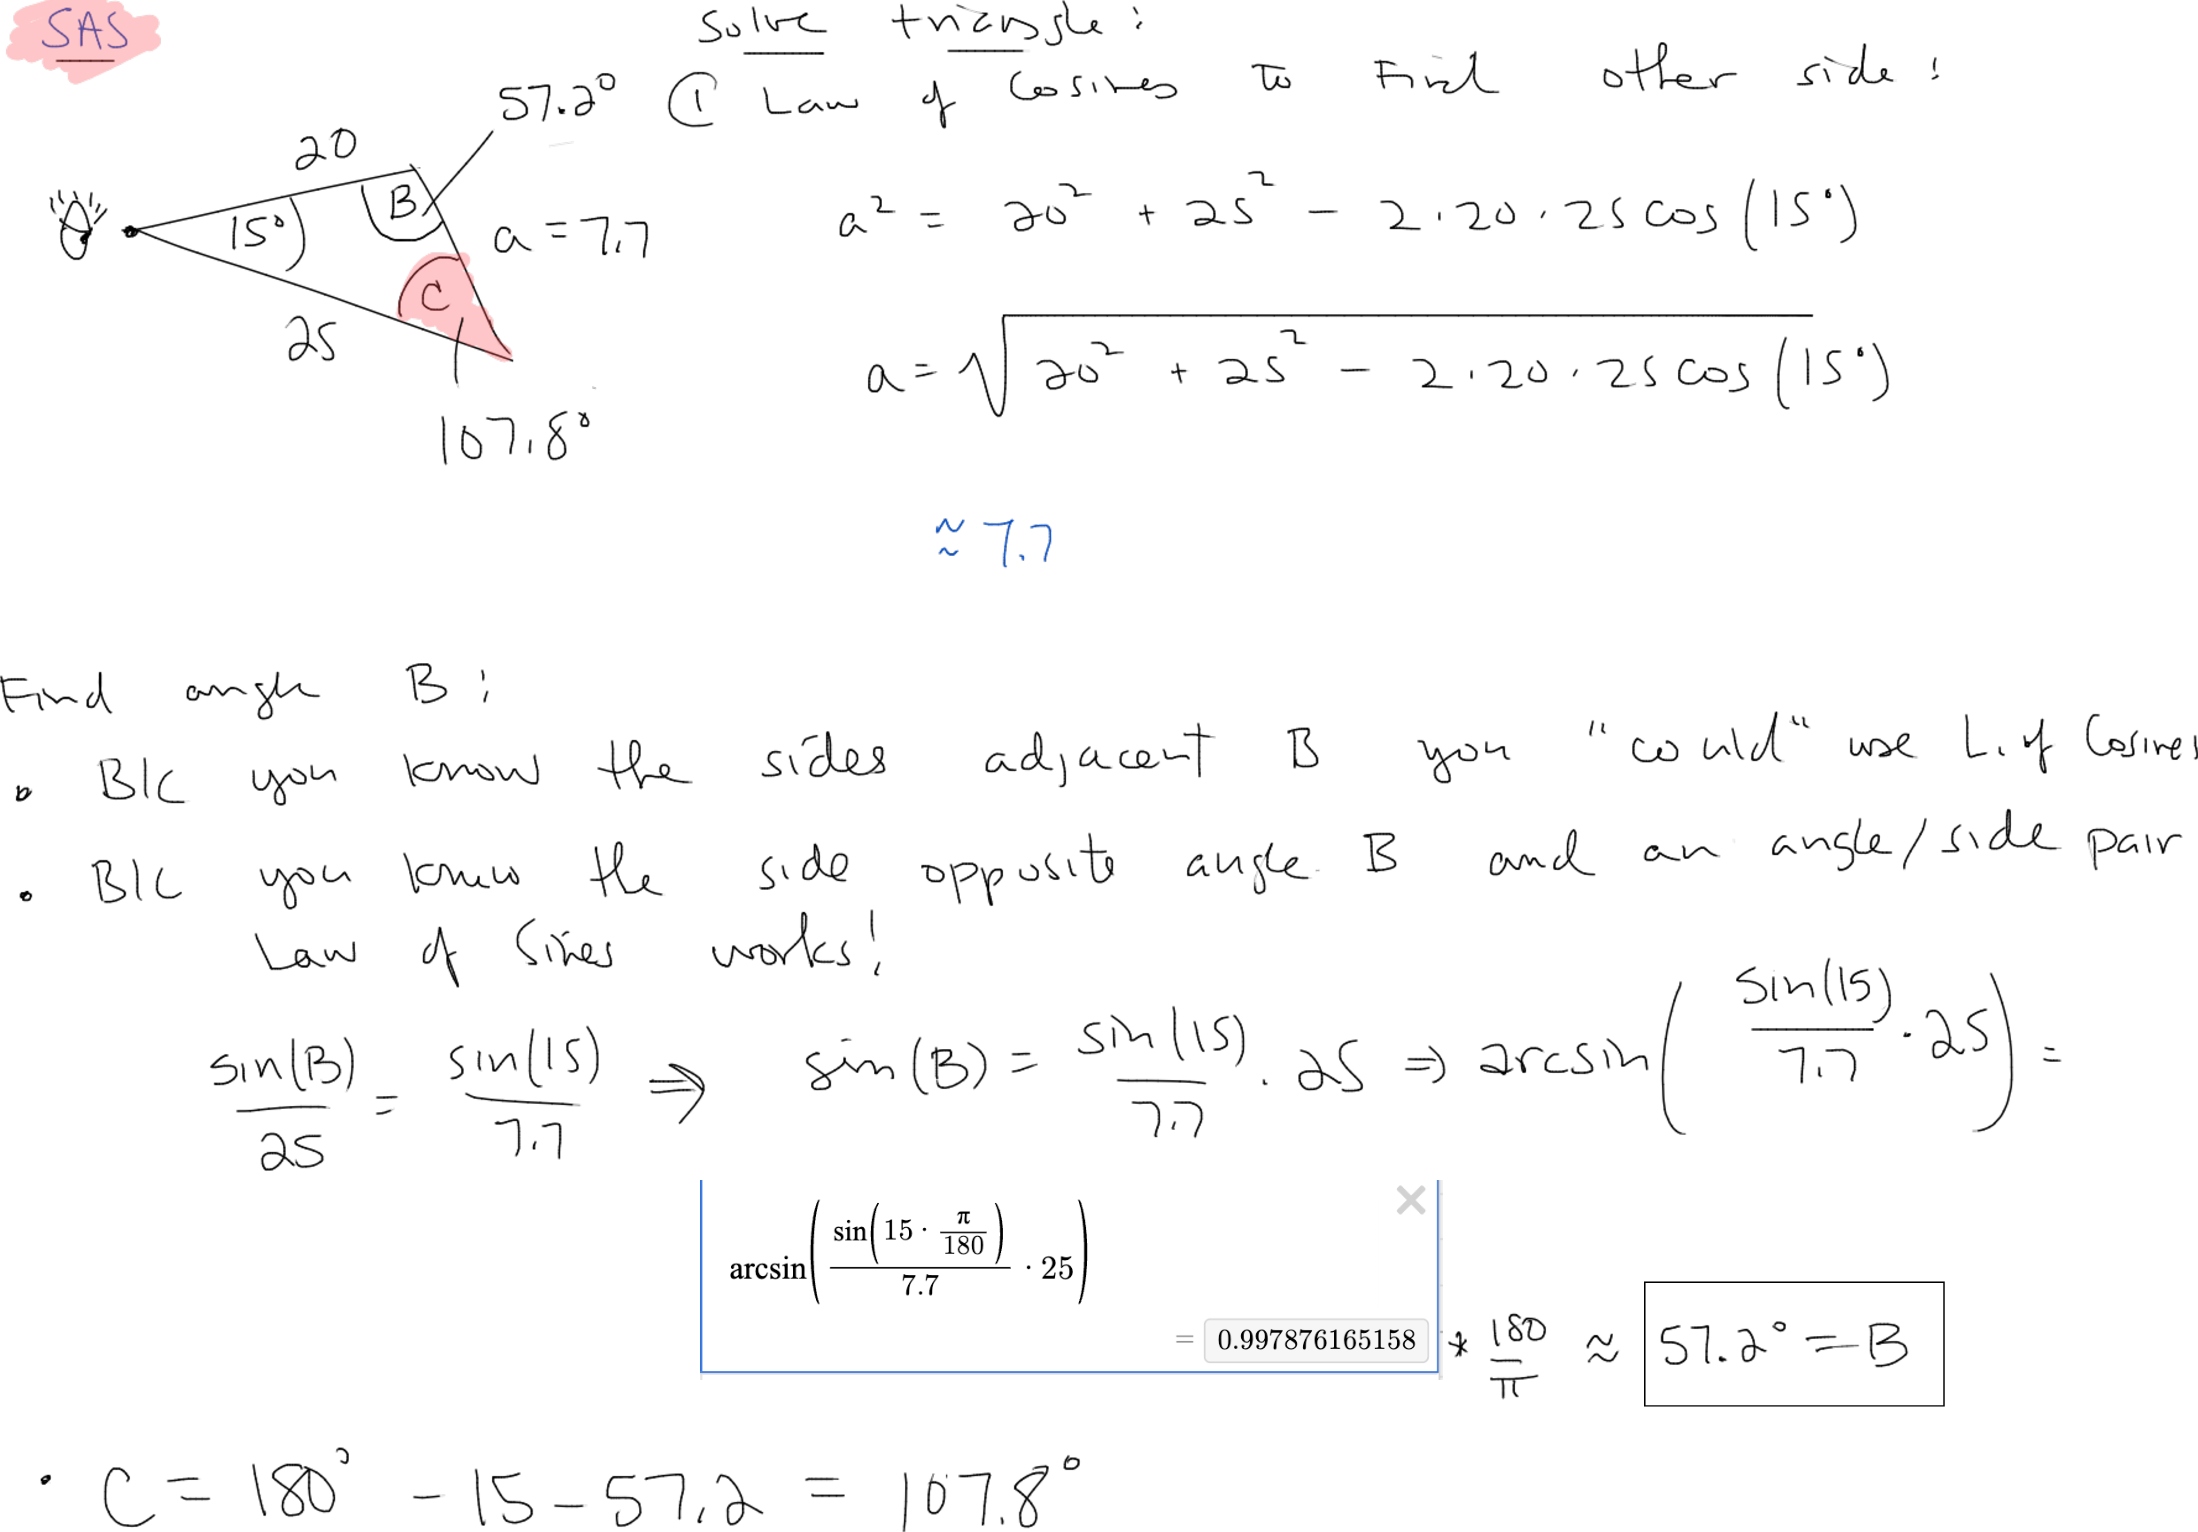 SAS
Solve triangle:
57.2° ① Law of Cosines to Find other side:
20
15°
B
a = 7.7
C
25
107.8°
a² = 20² + 25² − 2·20·25 cos(15°)
a = √(20² + 25² − 2·20·25 cos(15°))
≈ 7.7
Find angle B:
• B/c you know the sides adjacent B you "could" use L. of Cosines
• B/c you know the side opposite angle B and an angle/side pair
Law of Sines works!
sin(B)/25 = sin(15)/7.7 ⇒ sin(B) = sin(15)/7.7 · 25 ⇒ arcsin(sin(15)/7.7 · 25) =
arcsin(sin(15 · π/180)/7.7 · 25)
= 0.997876165158 * 180/π ≈ 57.2° = B
• C = 180° − 15 − 57.2 = 107.8°